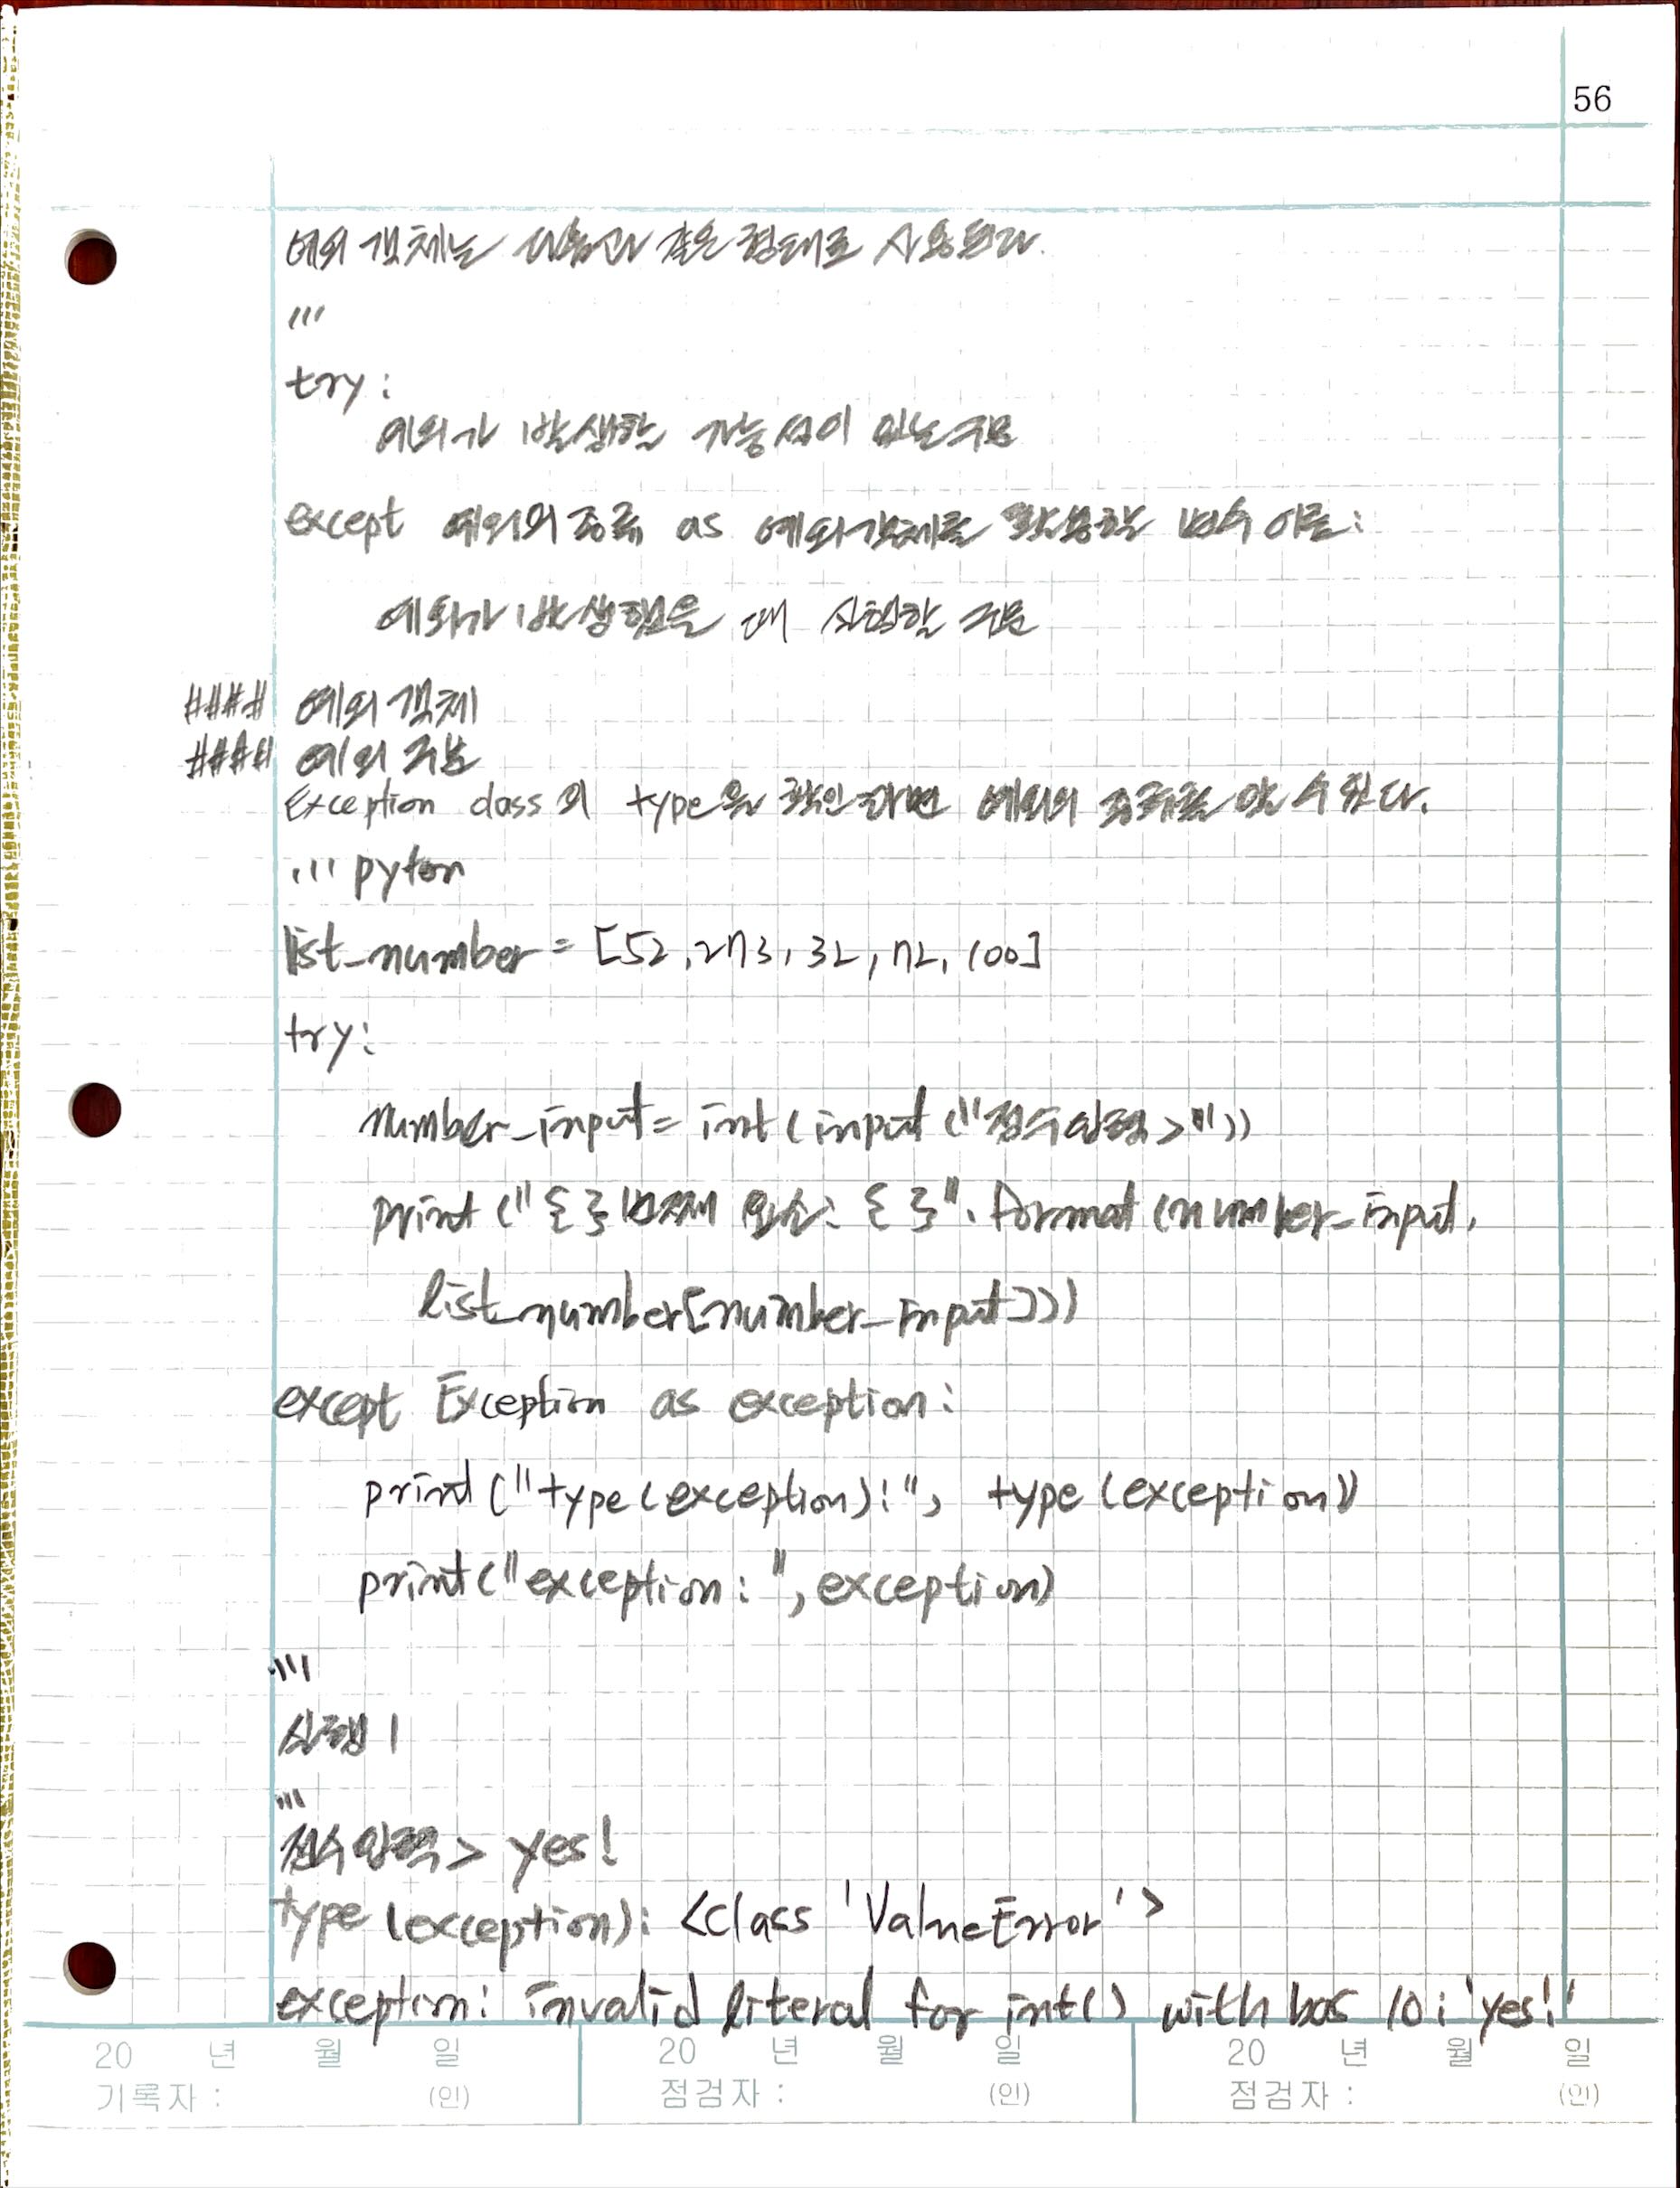 56
예외 객체는 다음과 같은 형태로 사용된다.
'''
try:
예외가 발생할 가능성이 있는 구문
except 예외의 종류 as 예외객체를 활용할 변수 이름:
예외가 발생했을 때 실행할 구문
#### 예외 객체
#### 예외 구분
Exception class의 type을 확인하면 예외의 종류를 알 수 있다.
''' pyton
list_number = [52, 273, 32, 72, 100]
try:
number_input = int(input("정수입력>"))
print("{}번째 요소: {}".format(number_input,
list_number[number_input]))
except Exception as exception:
print("type(exception):", type(exception))
print("exception:", exception)
'''
실행 1
'''
정수입력> yes!
type(exception): <class 'ValueError'>
exception: invalid literal for int() with bas 10: 'yes!'
20 년 월 일 20 년 월 일 20 년 월 일
기록자 : (인) 점검자 : (인) 점검자 : (인)